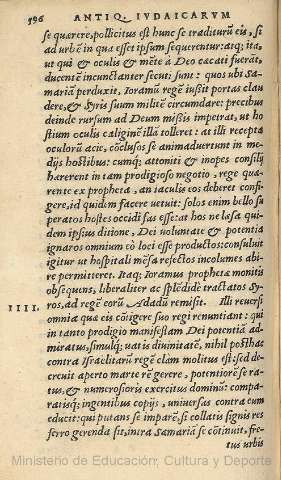 596 ANTIQ. IVDAICARVM
se quærere, pollicitus est hunc se traditurū eis, si
ad urbē in qua esset ipsum sequerentur: atq; ita,
ut qui & oculis & mēte à Deo cæcati fuerāt,
ducentē incunctanter secuti sunt: quos ubi Sa-
mariā perduxit, Ioramū regē iussit portas clau
dere, & Syris suum militē circundare: precibus
deinde rursum ad Deum missis impetrat, ut ho
stium oculis caliginē illā tolleret: at illi recepta
oculorū acie, cōclusos se animaduertunt in me-
dijs hostibus: cumq; attoniti & inopes consilij
hærerent in tam prodigioso negotio, rege quæ-
rente ex propheta, an iaculis eos deberet confi-
gere, id quidem facere uetuit: solos enim bello su
peratos hostes occidi fas esse: at hos ne læsa qui-
dem ipsius ditione, Dei uoluntate & potentia
ignaros omnium eò loci esse productos: consuluit
igitur ut hospitali mēsa refectos incolumes abi-
re permitteret. Itaq; Ioramus prophetæ monitis
obsequens, liberaliter ac splēdidè tractatos Sy-
IIII. ros, ad regē eorū Adadū remisit. Illi reuersi
omnia quæ eis cōtigere suo regi renuntiant: qui
in tanto prodigio manifestam Dei potentiā ad-
miratus, simulq; uatis diuinitatē, nihil posthac
contra Israëlitarū regē clam molitus est: sed de-
creuit aperto marte rē gerere, potentiorē se ra-
tus, & numerosioris exercitus dominū: compa-
ratisq; ingentibus copijs, uniuersas contra eum
educit: qui putans se imparē, si collatis signis res
ferro gerenda sit, intra Samariā se cōtinuit, fre-
tus urbis
Ministerio de Educación, Cultura y Deporte